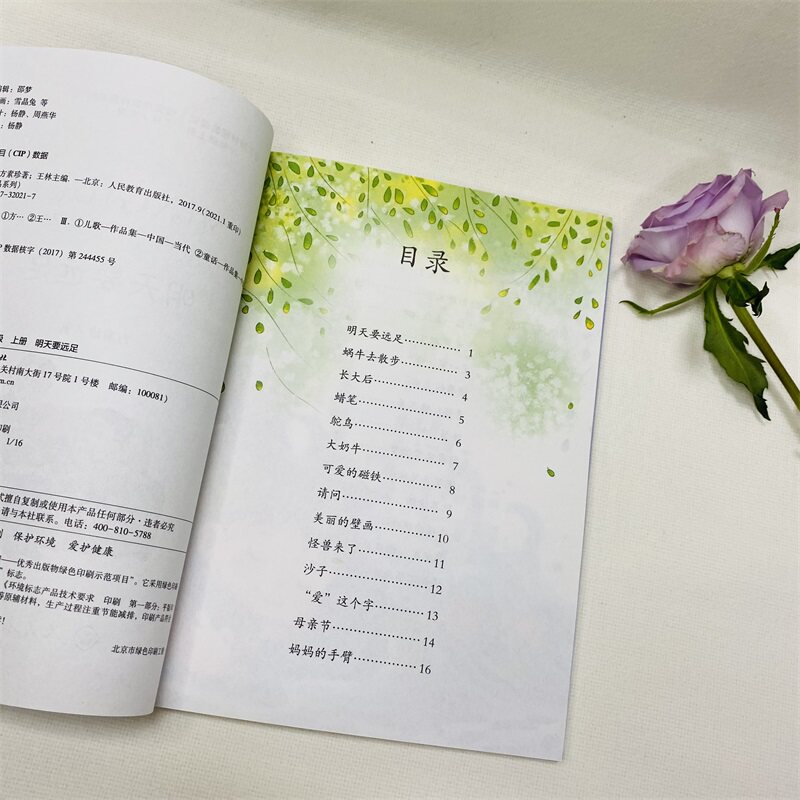 编辑：邵梦
画：雪晶兔 等
计：杨静、周燕华
：杨静
目（CIP）数据
方素珍著；王林主编. —北京：人民教育出版社，2017.9（2021.1 重印）
系列）
7-32021-7
①方… ②王… Ⅲ. ①儿歌—作品集—中国—当代 ②童话—作品集
P 数据核字（2017）第 244455 号
级 上册 明天要远足
社
关村南大街 17 号院 1 号楼 邮编：100081）
m.cn
限公司
印刷
1/16
式擅自复制或使用本产品任何部分·违者必究
请与本社联系。电话：400-810-5788
保护环境 爱护健康
——优秀出版物绿色印刷示范项目”。它采用绿色印刷
”标志。
《环境标志产品技术要求 印刷 第一部分：平版印
等原辅材料，生产过程注重节能减排，印刷产品符合
！
北京市绿色印刷工程
目录
明天要远足………………… 1
蜗牛去散步……………… 3
长大后…………………… 4
蜡笔……………………… 5
鸵鸟……………………… 6
大奶牛…………………… 7
可爱的磁铁……………… 8
请问……………………… 9
美丽的壁画……………… 10
怪兽来了………………… 11
沙子……………………… 12
“爱”这个字…………… 13
母亲节…………………… 14
妈妈的手臂……………… 16